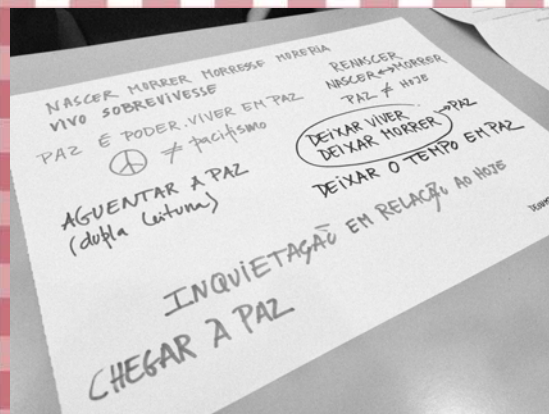 NASCER MORRER MORRESSE MORERIA
VIVO SOBREVIVESSE
PAZ É PODER.VIVER EM PAZ
≠ pacifismo
AGUENTAR A PAZ
(dupla leitura)
RENASCER
NASCER↔MORRER
PAZ ≠ HOJE
DEIXAR VIVER
DEIXAR MORRER →PAZ
DEIXAR O TEMPO EM PAZ
INQUIETAÇÃO EM RELAÇÃO AO HOJE
CHEGAR À PAZ